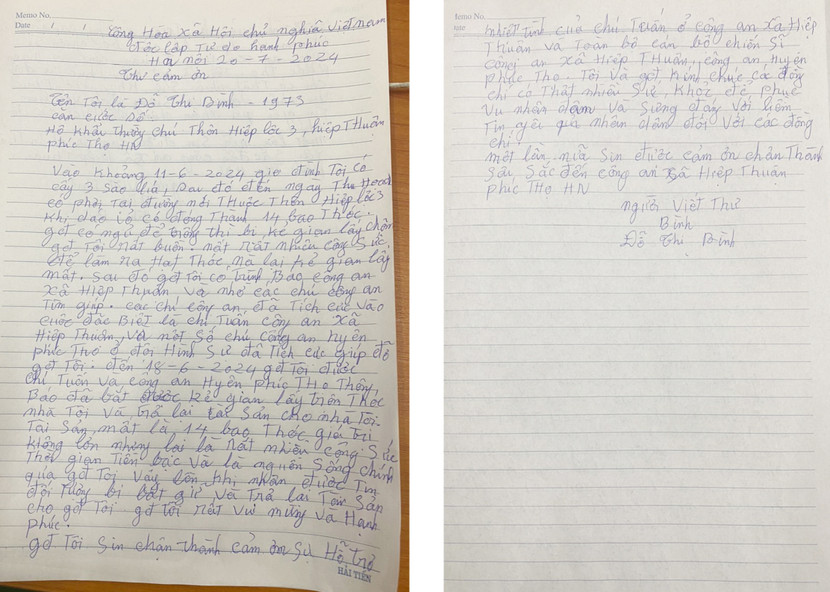 Memo No.
Date / /
Cộng Hòa Xã Hội chủ nghĩa Việt nam
độc lập Tự do hạnh phúc
Hà nội 20-7-2024
Thư cảm ơn
Tên Tôi là Đỗ Thị Bình - 1973
căn cước số:
Hộ khẩu Thường chú Thôn Hiệp lộc 3, hiệp Thuận
phúc Thọ HN
Vào khoảng 11-6-2024 gia đình Tôi có
cấy 3 sào lúa, sau đó đến ngày Thu Hoạch
có phơi Tại đường nối Thuộc Thôn Hiệp lộc 3
khi đó có đóng Thành 14 bao Thóc.
gđ có ngủ để trông thì bị kẻ gian lấy chộm
gđ Tôi rất buồn. mất rất nhiều công sức
để làm ra Hạt Thóc, mà lại kẻ gian lấy
mất. sau đó gđ Tôi có trình Báo công an
xã Hiệp Thuận và nhờ các chú công an
Tìm giúp. các chú công an đã Tích cực vào
cuộc đặc Biệt là chú Tuấn công an xã
Hiệp Thuận, và một số chú công an huyện
phúc Thọ ở đội Hình sự đã Tích cực giúp đỡ
gđ Tôi. đến 18-6-2024 gđ Tôi được
chú Tuấn và công an Huyện phúc Thọ Thông
Báo đã bắt được kẻ gian lấy trộm Thóc
nhà Tôi và trả lại tài sản cho nhà Tôi.
Tài sản mất là 14 bao Thóc, giá trị
không lớn nhưng lại là rất nhiều công sức
Thời gian Tiền bạc và là nguồn sống chính
của gđ Tôi vậy lên khi nhận được Tin
đối Tượng bị bắt giữ và Trả lại Tài sản
cho gđ Tôi gđ Tôi rất vui mừng và Hạnh
phúc.
gđ Tôi sin chân thành cảm ơn sự Hỗ trợ
HẢI TIẾN
Memo No.
nhiệt tình của chú Tuấn ở công an xã Hiệp
Thuận và Toàn bộ cán bộ chiến sĩ
công an xã Hiệp Thuận, công an Huyện
phúc Thọ. Tôi và gđ kính chúc các đồng
chí có Thật nhiều sức khỏe để phục
vụ nhân dân và sứng đáng với niềm
Tin yêu quý nhân dân đối với các đồng
chí.
một lần nữa sin được cảm ơn chân Thành
sâu sắc đến công an xã Hiệp Thuận
phúc Thọ HN
người viết Thư
Bình
Đỗ Thị Bình